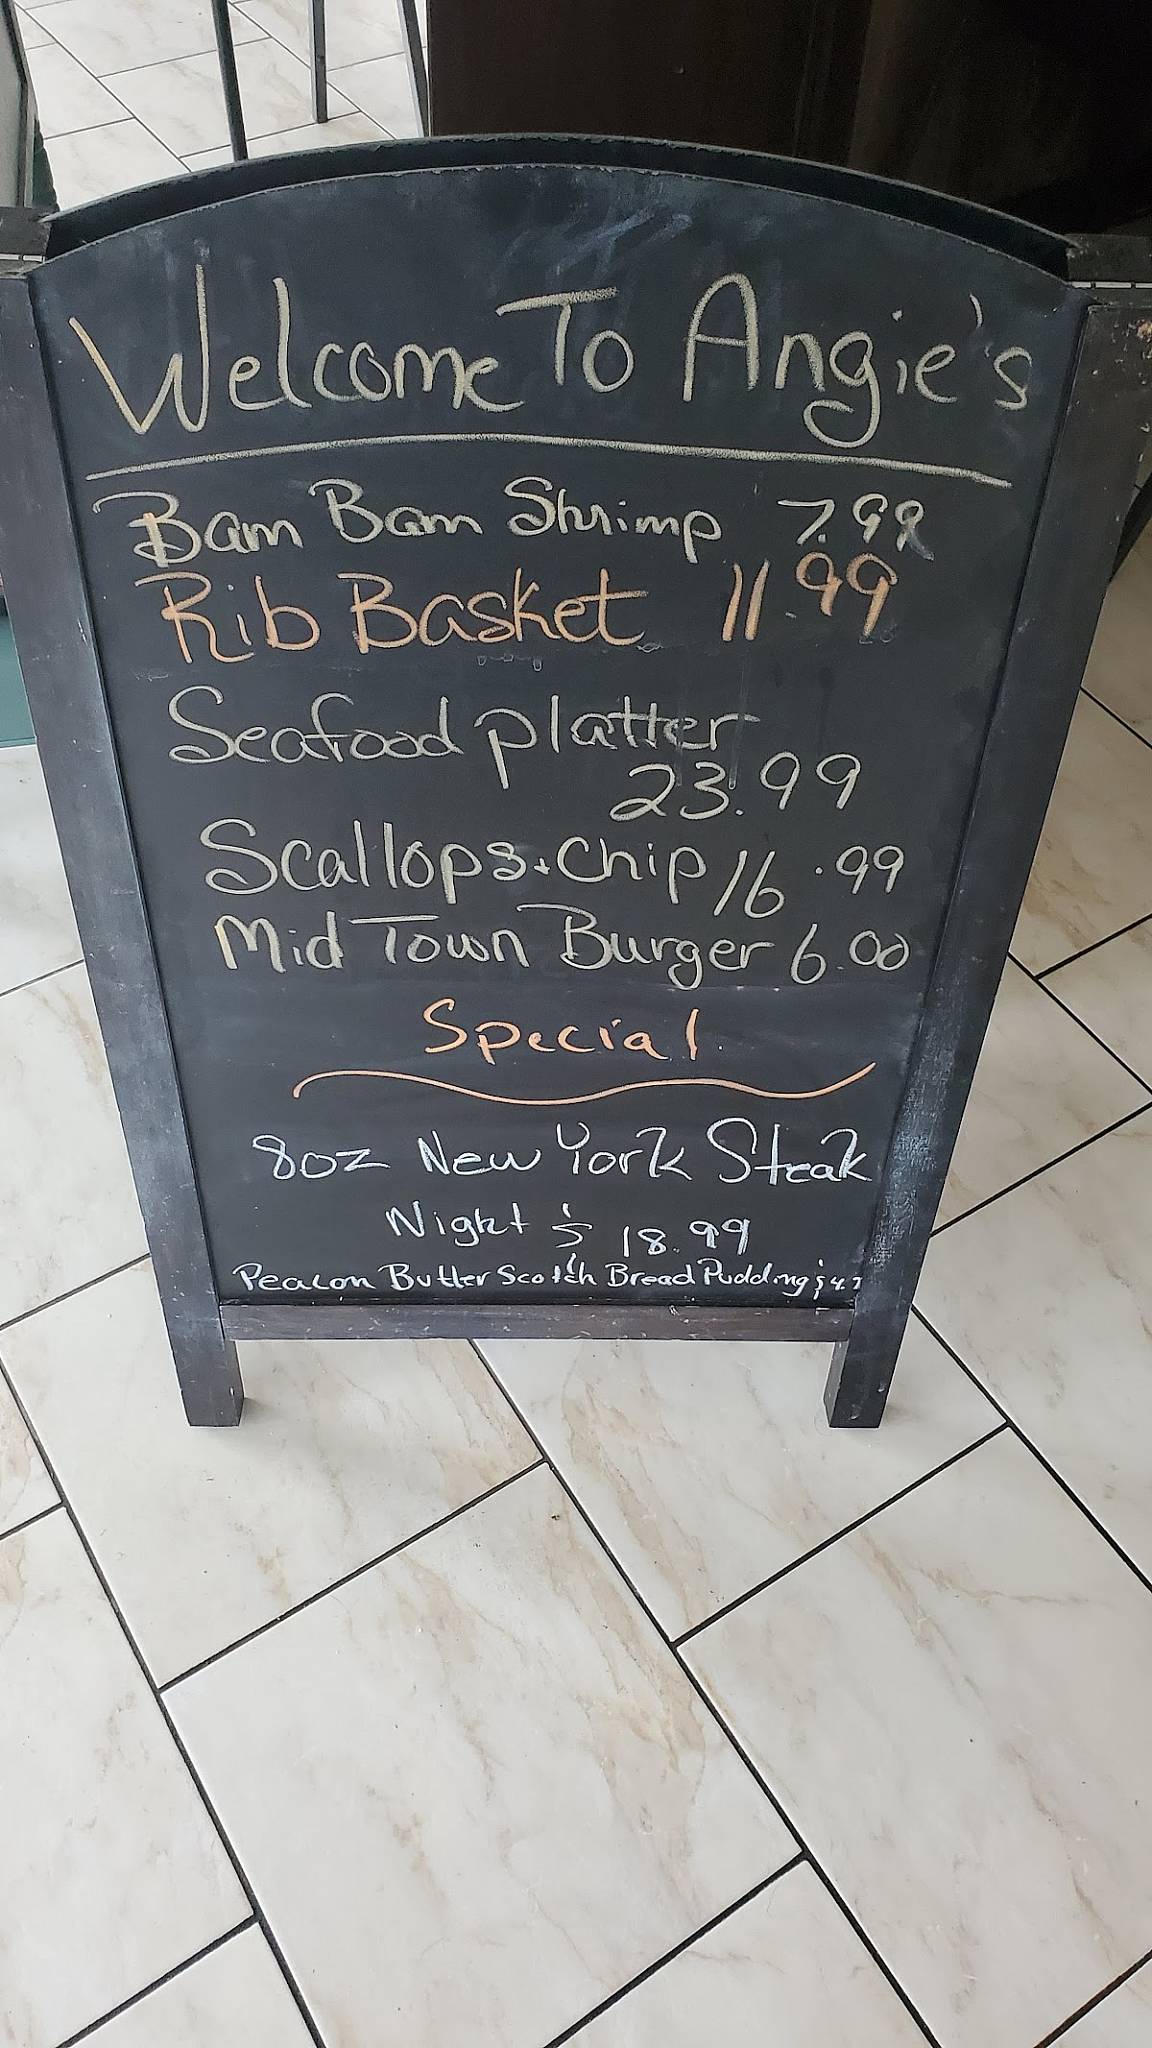 Welcome To Angie's
Bam Bam Shrimp 7.99
Rib Basket 11.99
Seafood platter
23.99
Scallops + chip 16.99
Mid Town Burger 6.00
Special
8oz New York Steak
Night $ 18.99
Peacon Butter Scotch Bread Pudding $4.